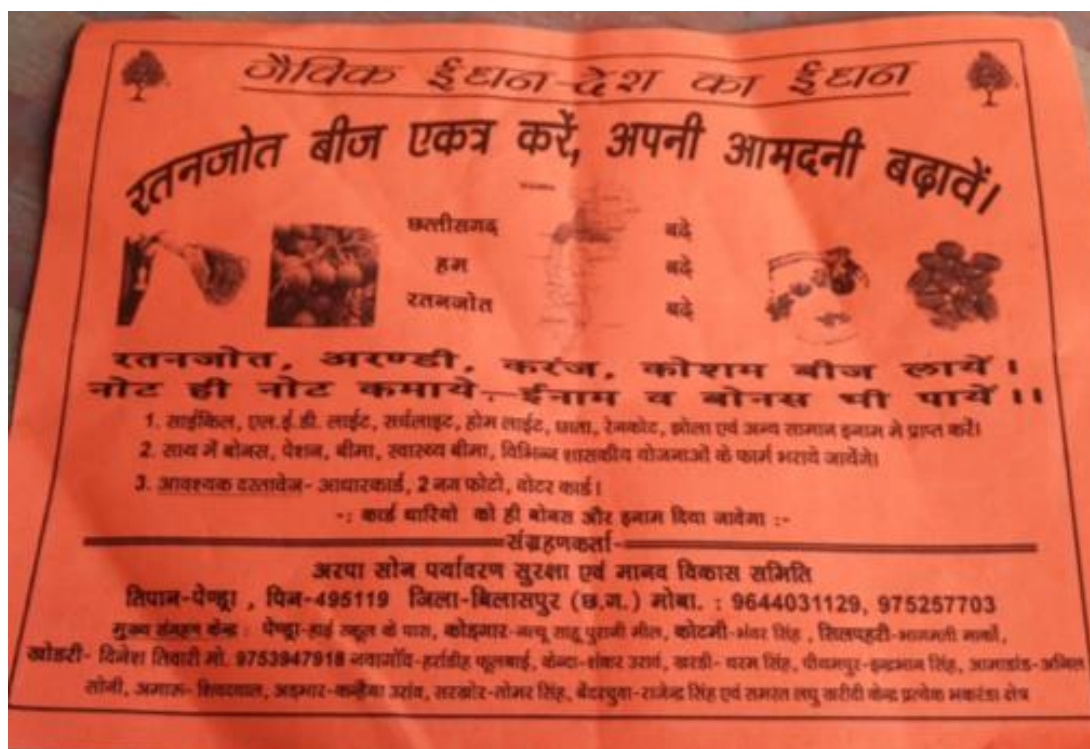 जैविक ईंधन-देश का ईंधन
रतनजोत बीज एकत्र करें, अपनी आमदनी बढ़ावें।
छत्तीसगढ़ बढ़े
हम बढ़े
रतनजोत बढ़े
रतनजोत, अरण्डी, करंज, कोशम बीज लायें।
नोट ही नोट कमाये-ईनाम व बोनस भी पायें।।
1. साईकिल, एल.ई.डी. लाईट, सर्चलाइट, होम लाईट, छाता, रेनकोट, झोला एवं अन्य सामान इनाम मे प्राप्त करें।
2. साथ में बोनस, पेशन, बीमा, स्वास्थ्य बीमा, विभिन्न शासकीय योजनाओं के फार्म भराये जावेंगे।
3. आवश्यक दस्तावेज- आधारकार्ड, 2 नग फोटो, वोटर कार्ड।
-: कार्ड धारियो को ही बोनस और इनाम दिया जावेगा :-
-संग्रहणकर्ता-
अरपा सोन पर्यावरण सुरक्षा एवं मानव विकास समिति
तिपान-पेण्ड्रा, पिन-495119 जिला-बिलासपुर (छ.ग.) मोबा. : 9644031129, 975257703
मुख्य संग्रहण केन्द्र : पेण्ड्रा-हाई स्कूल के पास, कोडगार-नत्थू साहू पुरानी मील, कोटमी-भंवर सिंह, सिलपहरी-भागमती मार्को,
खोडरी- दिनेश तिवारी मो. 9753947918 नवागाँव-हर्राडीह फूलबाई, केन्दा-शंकर उरांव, खरडी- धरम सिंह, पीयमपुर-इन्द्रभान सिंह, आमाडांड-अनिल
सोनी, अमारू- शिवदयाल, अड़भार-कन्हैया उरांव, सरखोर-तोमर सिंह, बेंदरचुवा-राजेन्द्र सिंह एवं समस्त लघु खरीदी केन्द्र प्रत्येक क्षेत्र